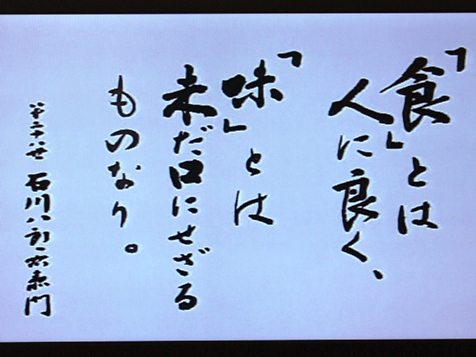 「食」とは
人に良く、
「味」とは
未だ口にせざる
ものなり。
第二十八世 石川八郎右衛門